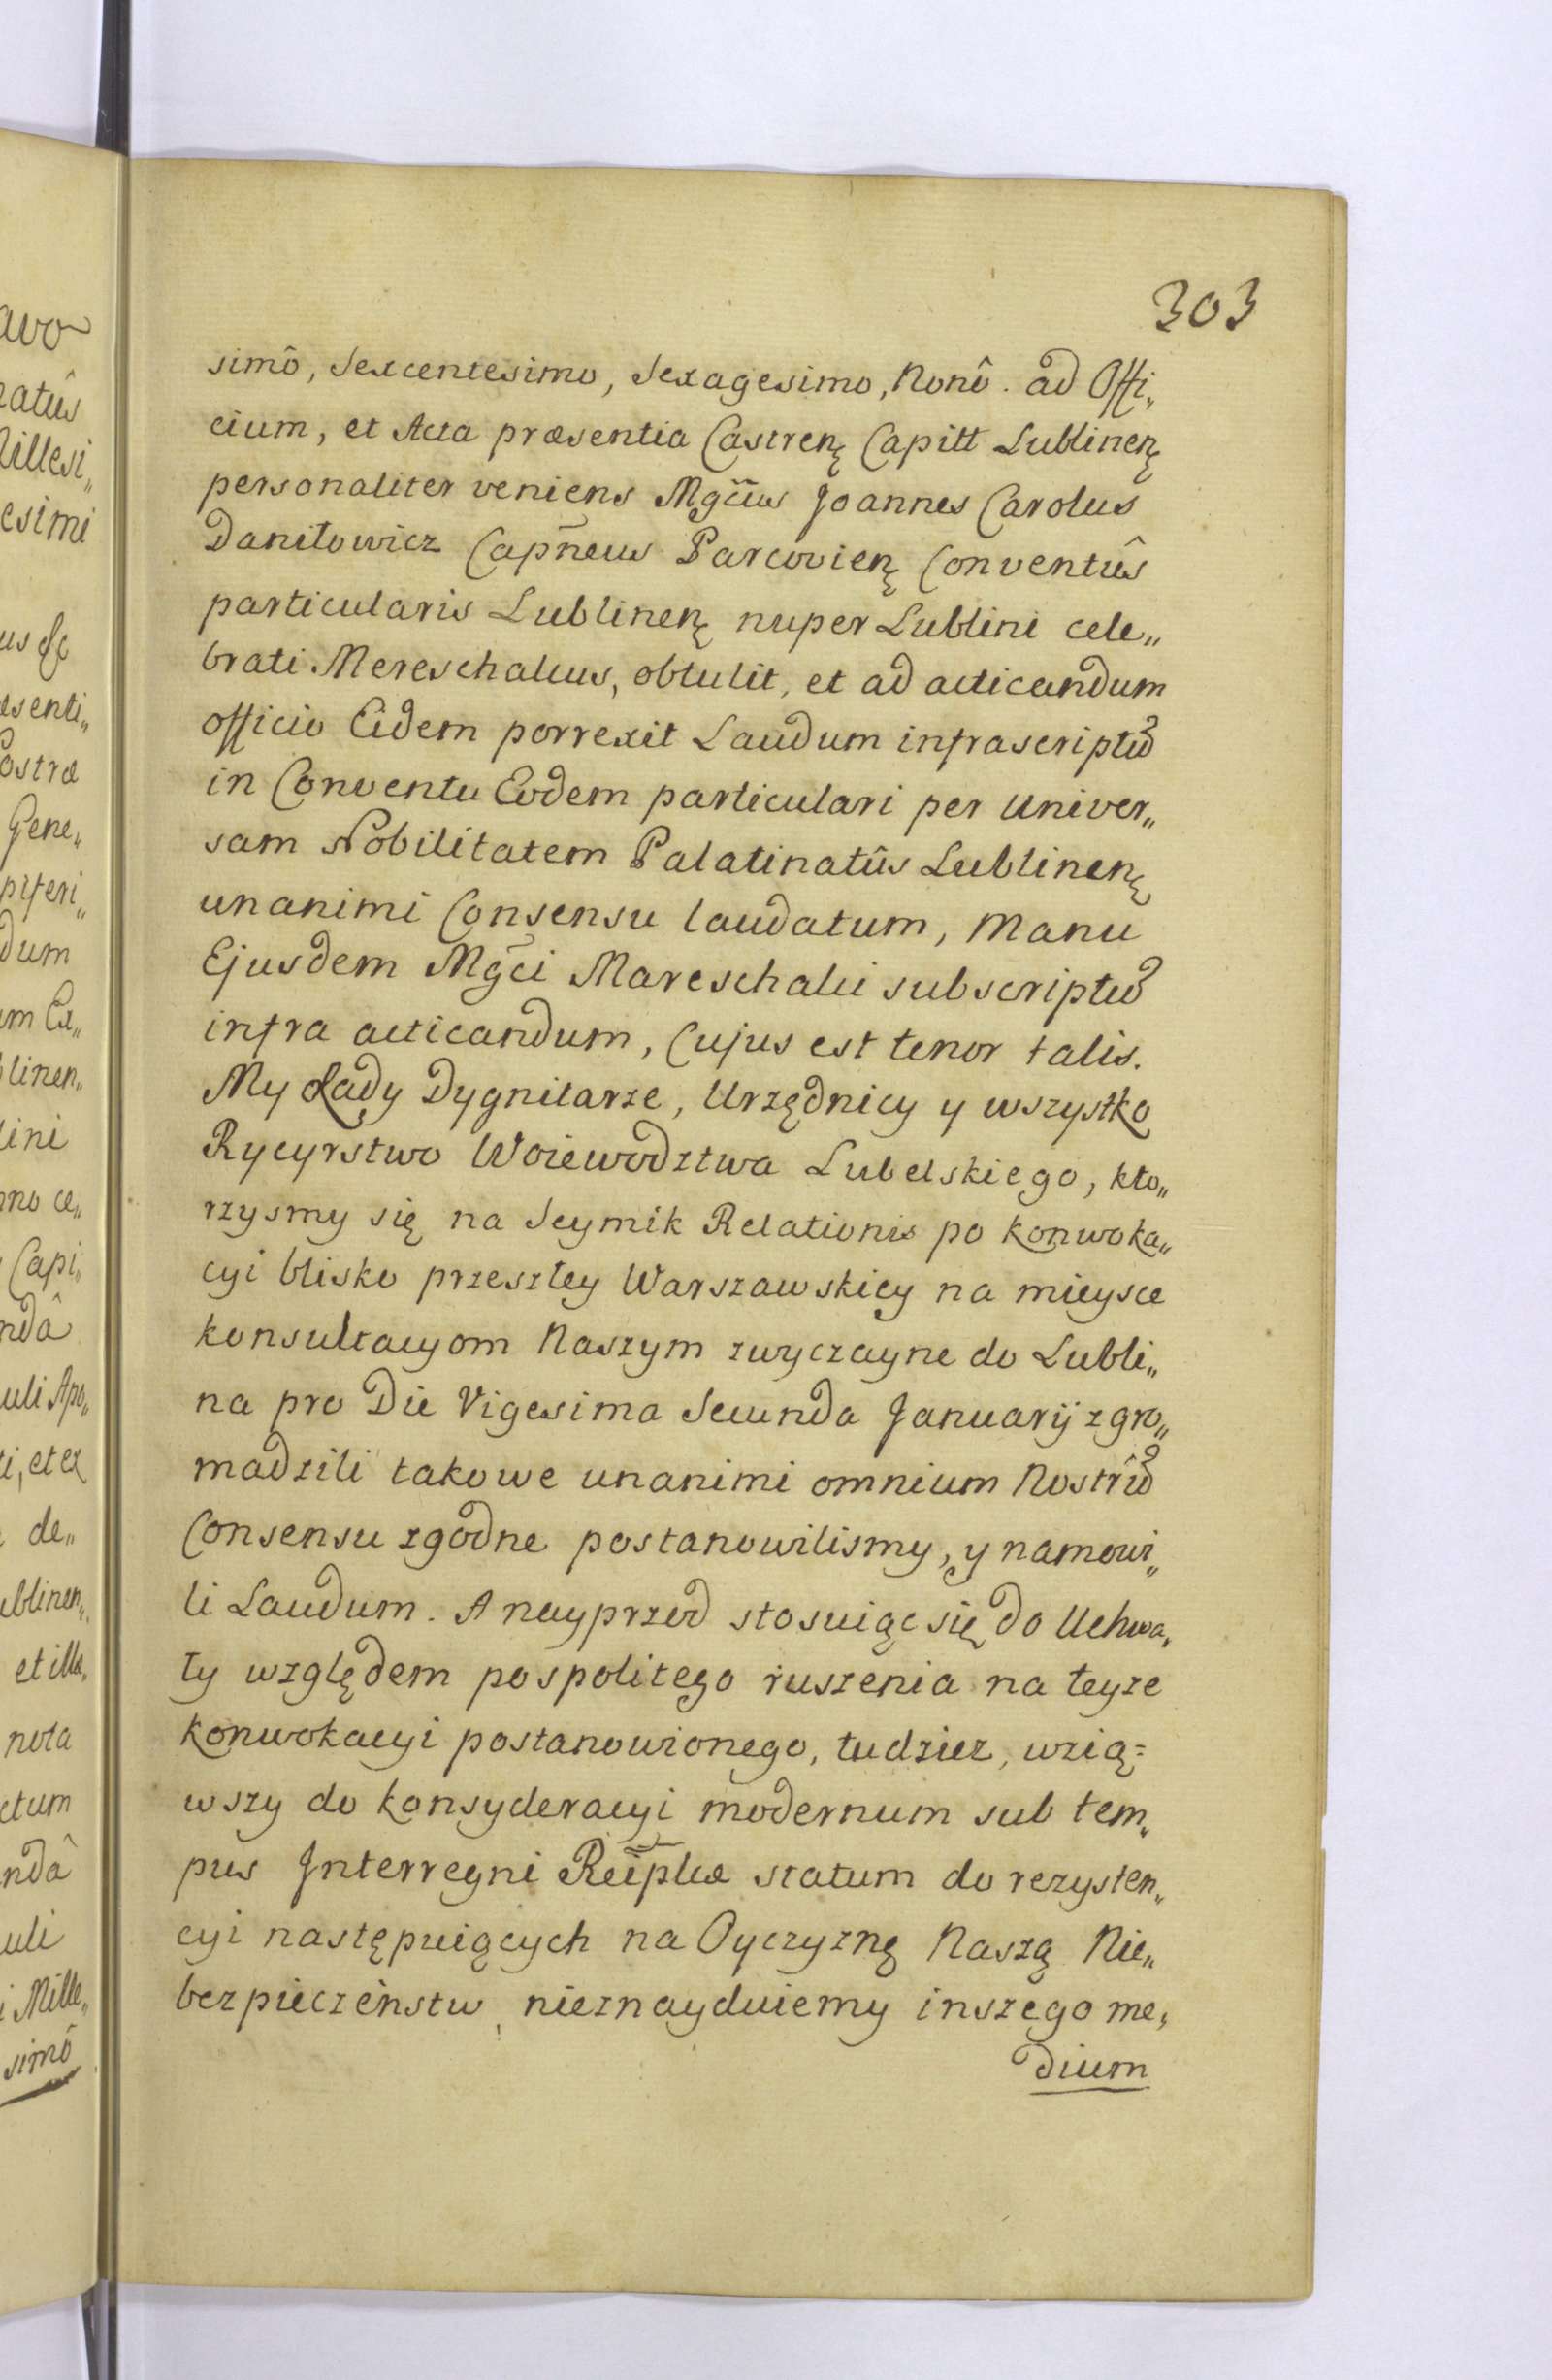 303
simô, Sexcentesimo, Sexagesimo, Nonô. ad Offi„
cium, et Acta præsentia Castrenę Capitt Lublinenę
personaliter veniens Mgc̃us Joannes Carolus
Daniłowicz Capñeus Parcovienę Conventûs
particularis Lublinenę nuper Lublini cele„
brati Mereschalcus, obtulit, et ad acticandum
officio Eidem porrexit Laudum infrascriptũ
in Conventu Eodem particulari per Univer„
sam Nobilitatem Palatinatûs Lublinenę
unanimi Consensu laudatum, Manu
Ejusdem Mg̃ci Mareschalci subscriptũ
infra acticandum, Cujus est tenor talis.
My Rady Dygnitarze, Urzędnicy y wszystko
Rycyrstwo Woiewodztwa Lubelskiego, kto„
rzysmy się na Seymik Relationis po konwoka„
cyi blisko przeszłey Warszawskiey na mieysce
konsultacyom Naszym zwyczayne do Lubli„
na pro Die Vigesima Secunda Januarij zgro„
madzili takowe unanimi omnium Nostrũ
Consensu zgodne postanowilismy, y namowi„
li Laudum. A nayprzod stosuiąc się do Uchwa„
ły względem pospolitego ruszenia na teyze
konwokacyi postanowionego, tudziez, wzią=
wszy do konsyderacyi modernum sub tem„
pus Interregni Reiplcæ statum do rezysten„
cyi następuiących na Oyczyznę Naszą Nie„
bezpieczeństw, nieznayduiemy inszego me„
dium